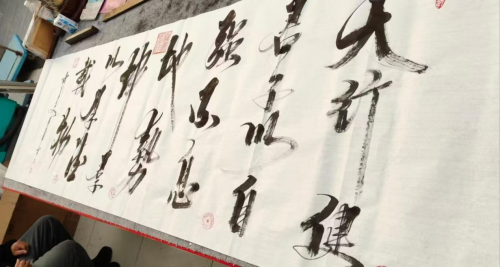 天行健
君子以自
强不息
地势
坤
以厚德
载物